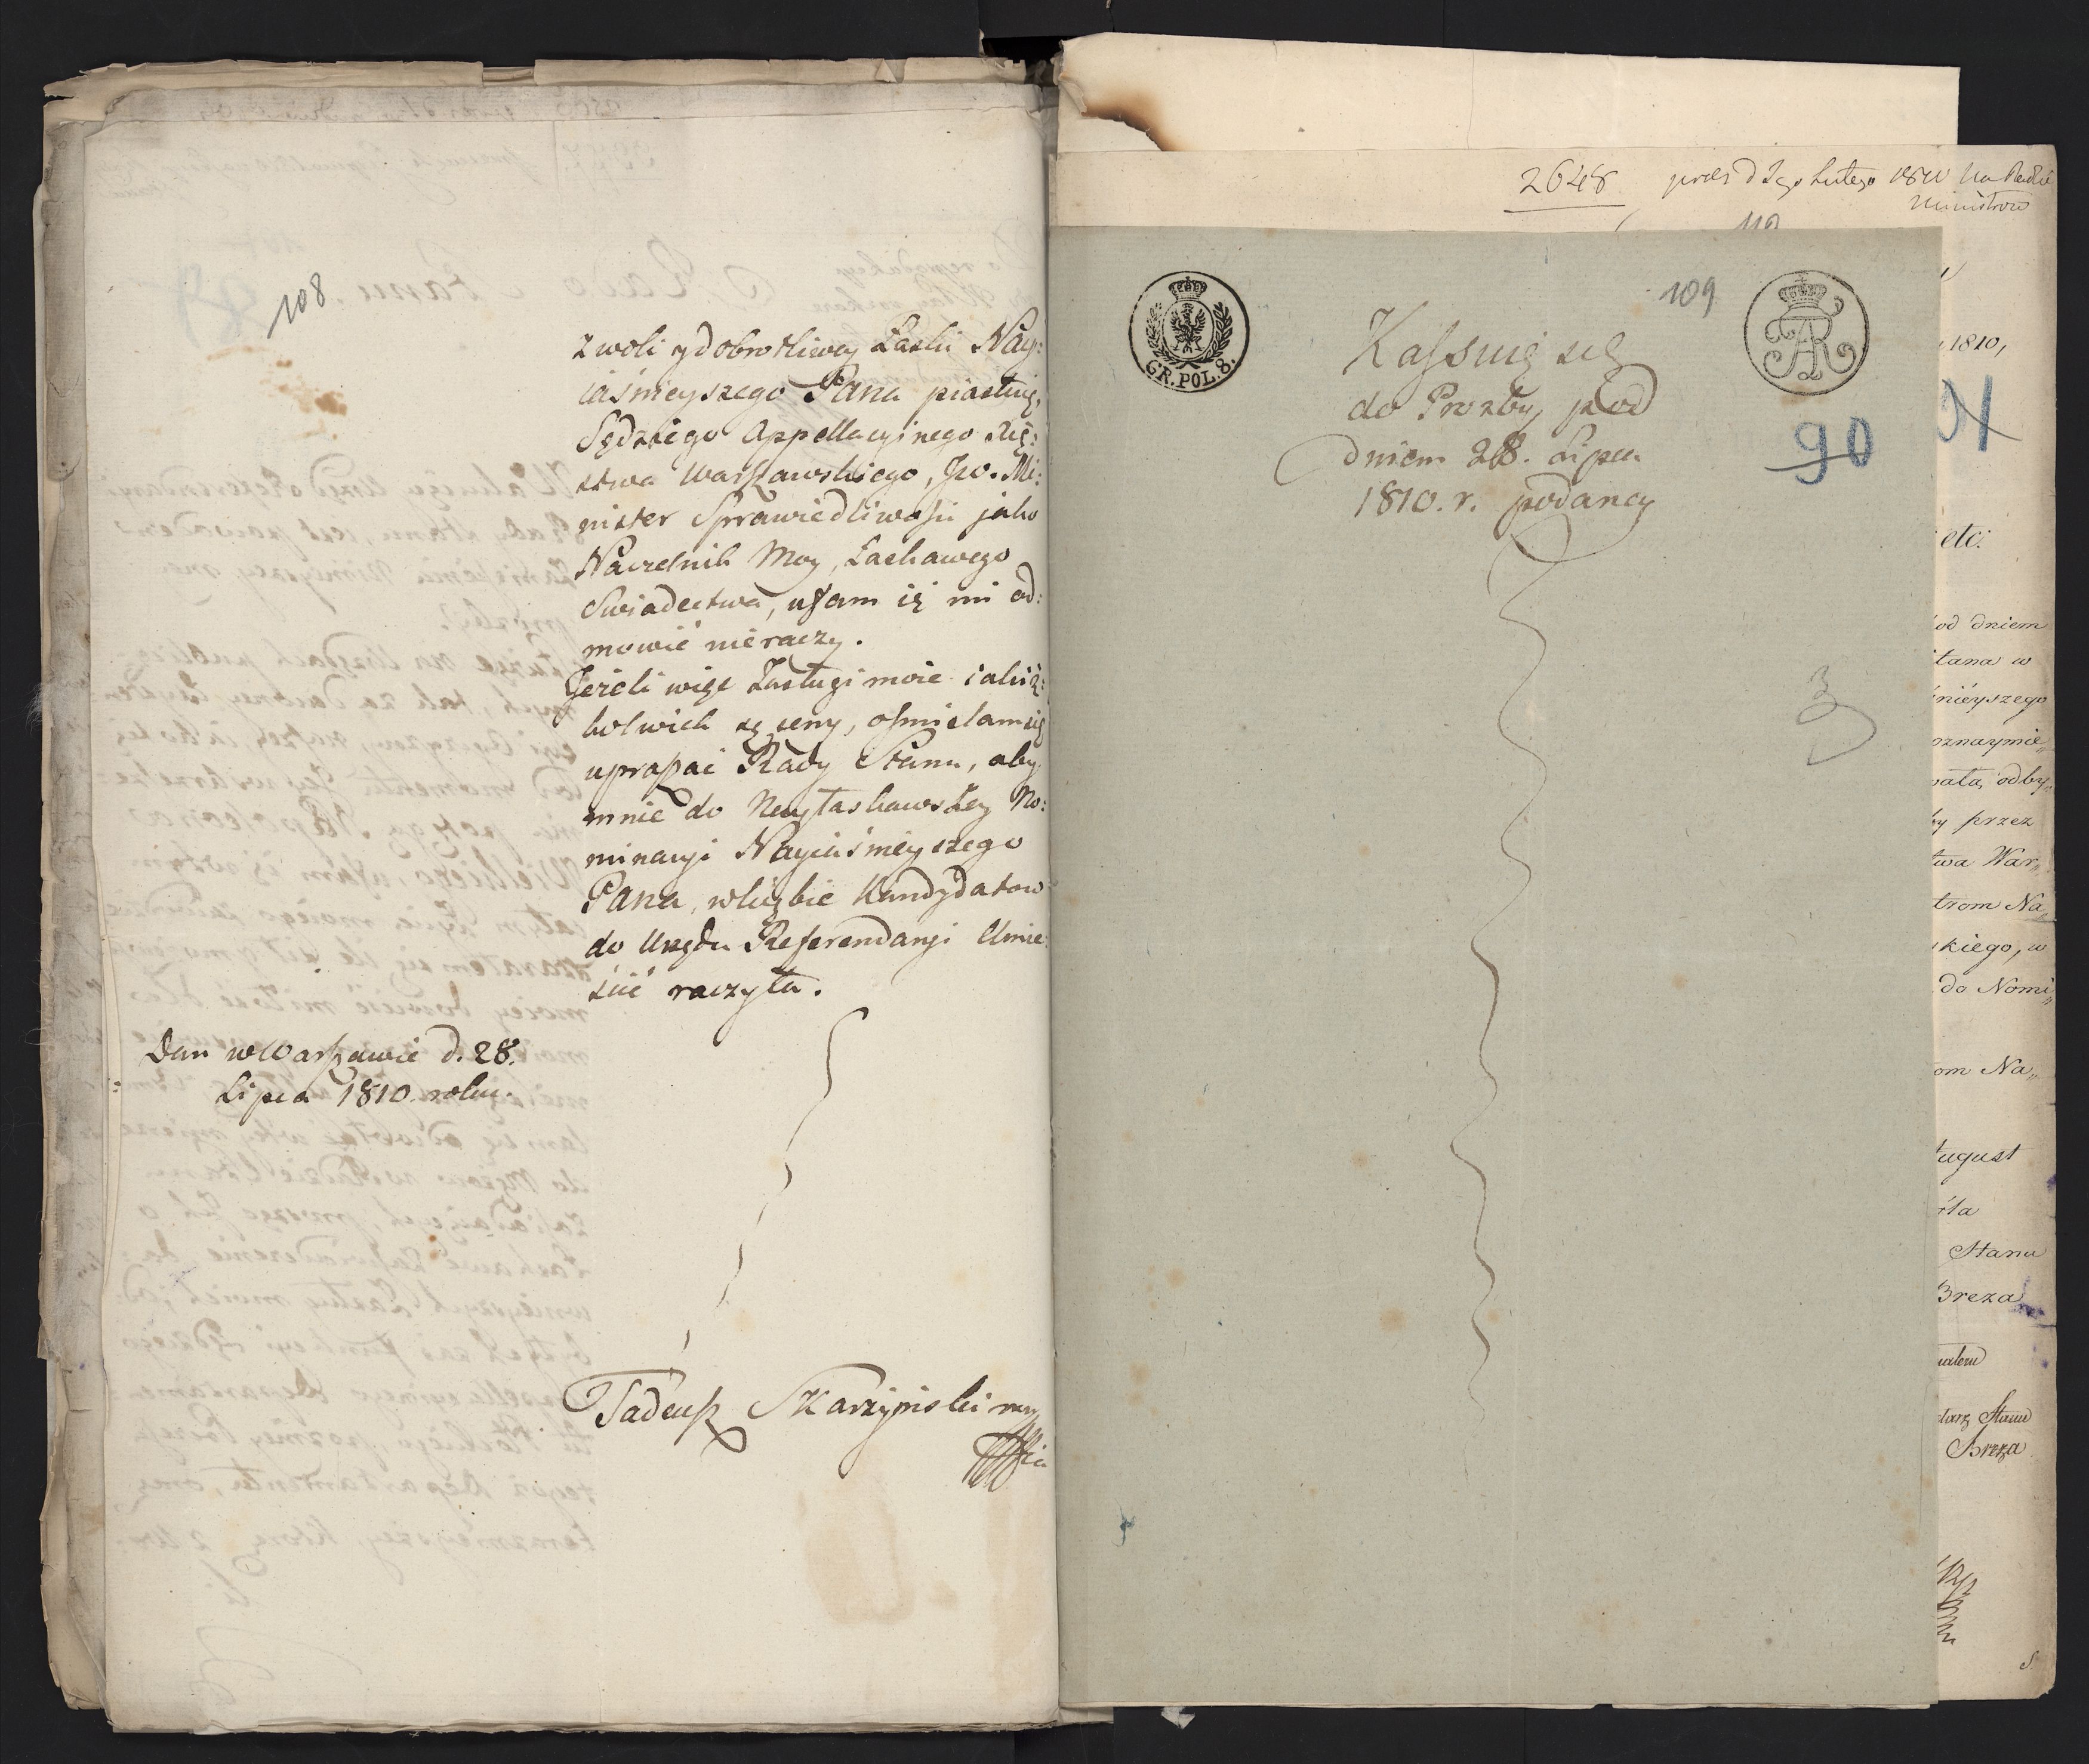 108
z woli y dobrotliwey Łaski Nay:
iaśnieyszego Pana piastuię,
Sędziego Appellacyinego Xię:
stwa Warszawskiego, Jw. Mi:
nister Sprawiedliwości jako
Naczelnik Moy, Łaskawego
Swiadectwa, ufam iż mi od:
mowić nieraczy.
Jeżeli więc Zasługi moie iakiż:
kolwiek są ceny, ośmielam się
upraszać Rady Stanu, aby
mnie do Nayłaskawszey No:
minacyi Nayiaśnieyszego
Pana, wliczbie Kandydatow
do Urzędu Referendaryi Umie:
ścić raczyła.
Dan w Warszawie d. 28.
Lipca 1810 roku.
Tadeusz Skarzyński mp
2648 prds d 2go Lutego 1810 Na Radzie
Ministrow
110
109
GR.POL.8.
Kassuię się
do Prozby pod
dniem 28. Lipca
1810. r. podaney
90
3
1810,
etc:
od dniem
tana w
nieyszego
oznaymie„
wała, odby„
by przez
twa War„
trom Na„
kiego, w
do Nomi„
om Na„
August
Stanu
Breza
Stanu
Breza